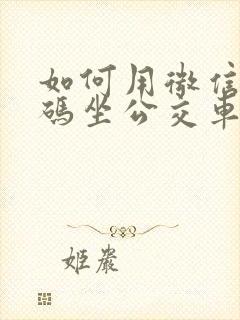 如何用微信
碼坐公交車
姬嚴